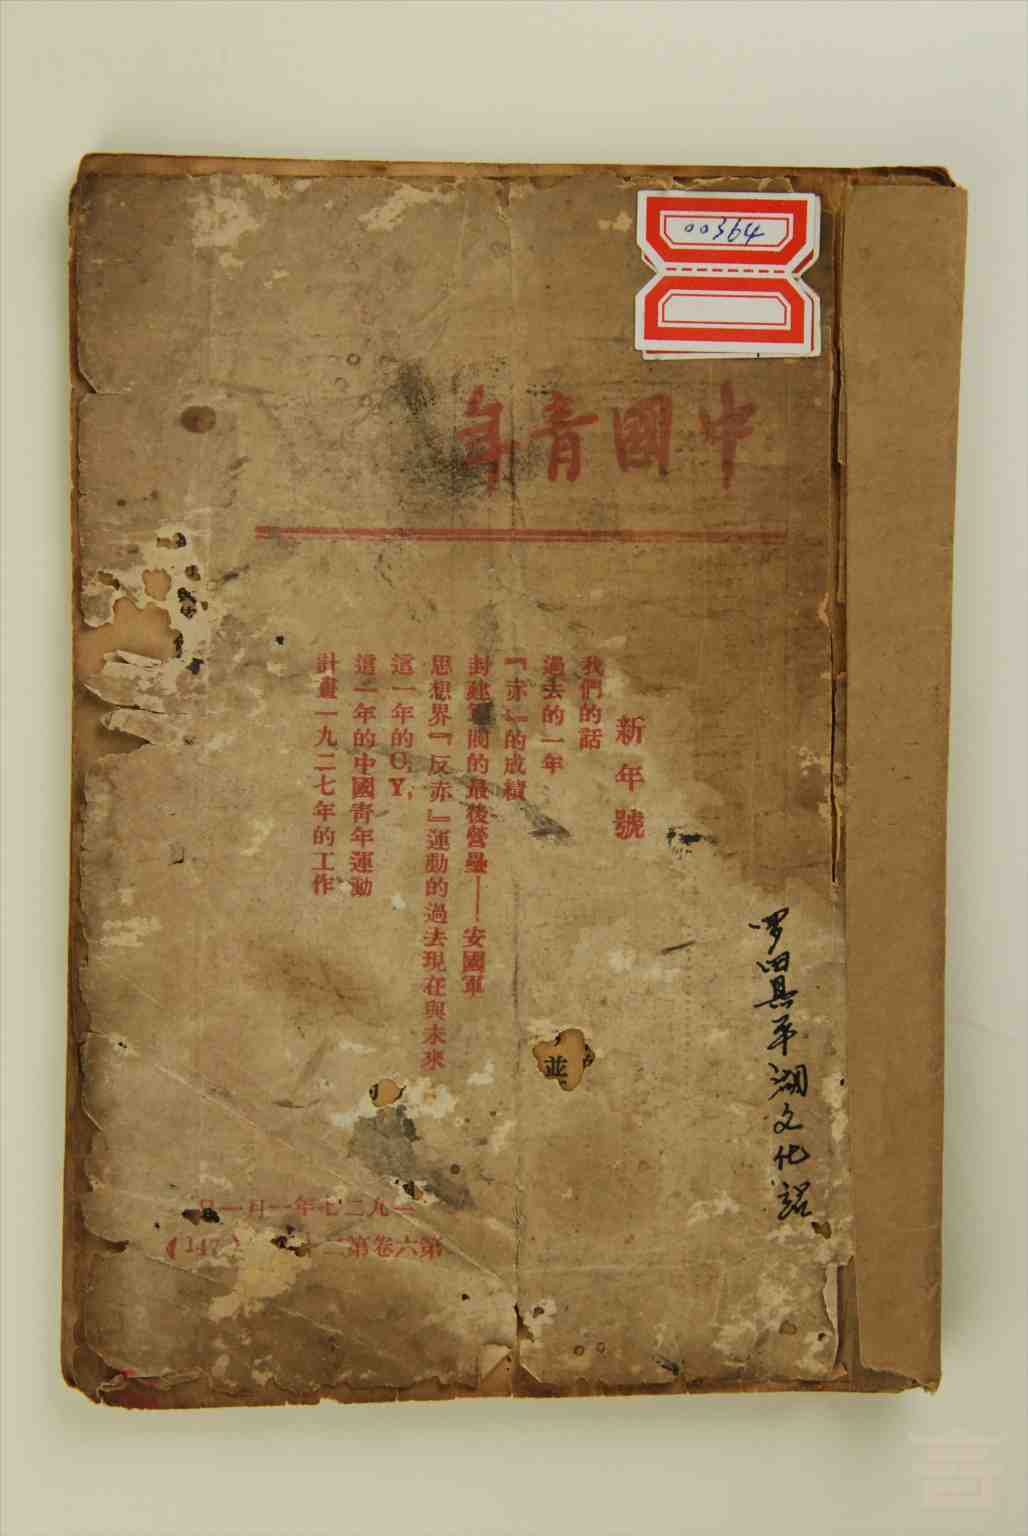 00364
中國青年
新年號
我們的話
過去的一年
『赤』的成績
封建軍閥的最後營壘——安國軍
思想界『反赤』運動的過去現在與未來
這一年的C,Y,
這一年的中國青年運動
計畫一九二七年的工作
並
罗田县平湖文化站
一九二七年一月一日
第六卷第二十 (147)